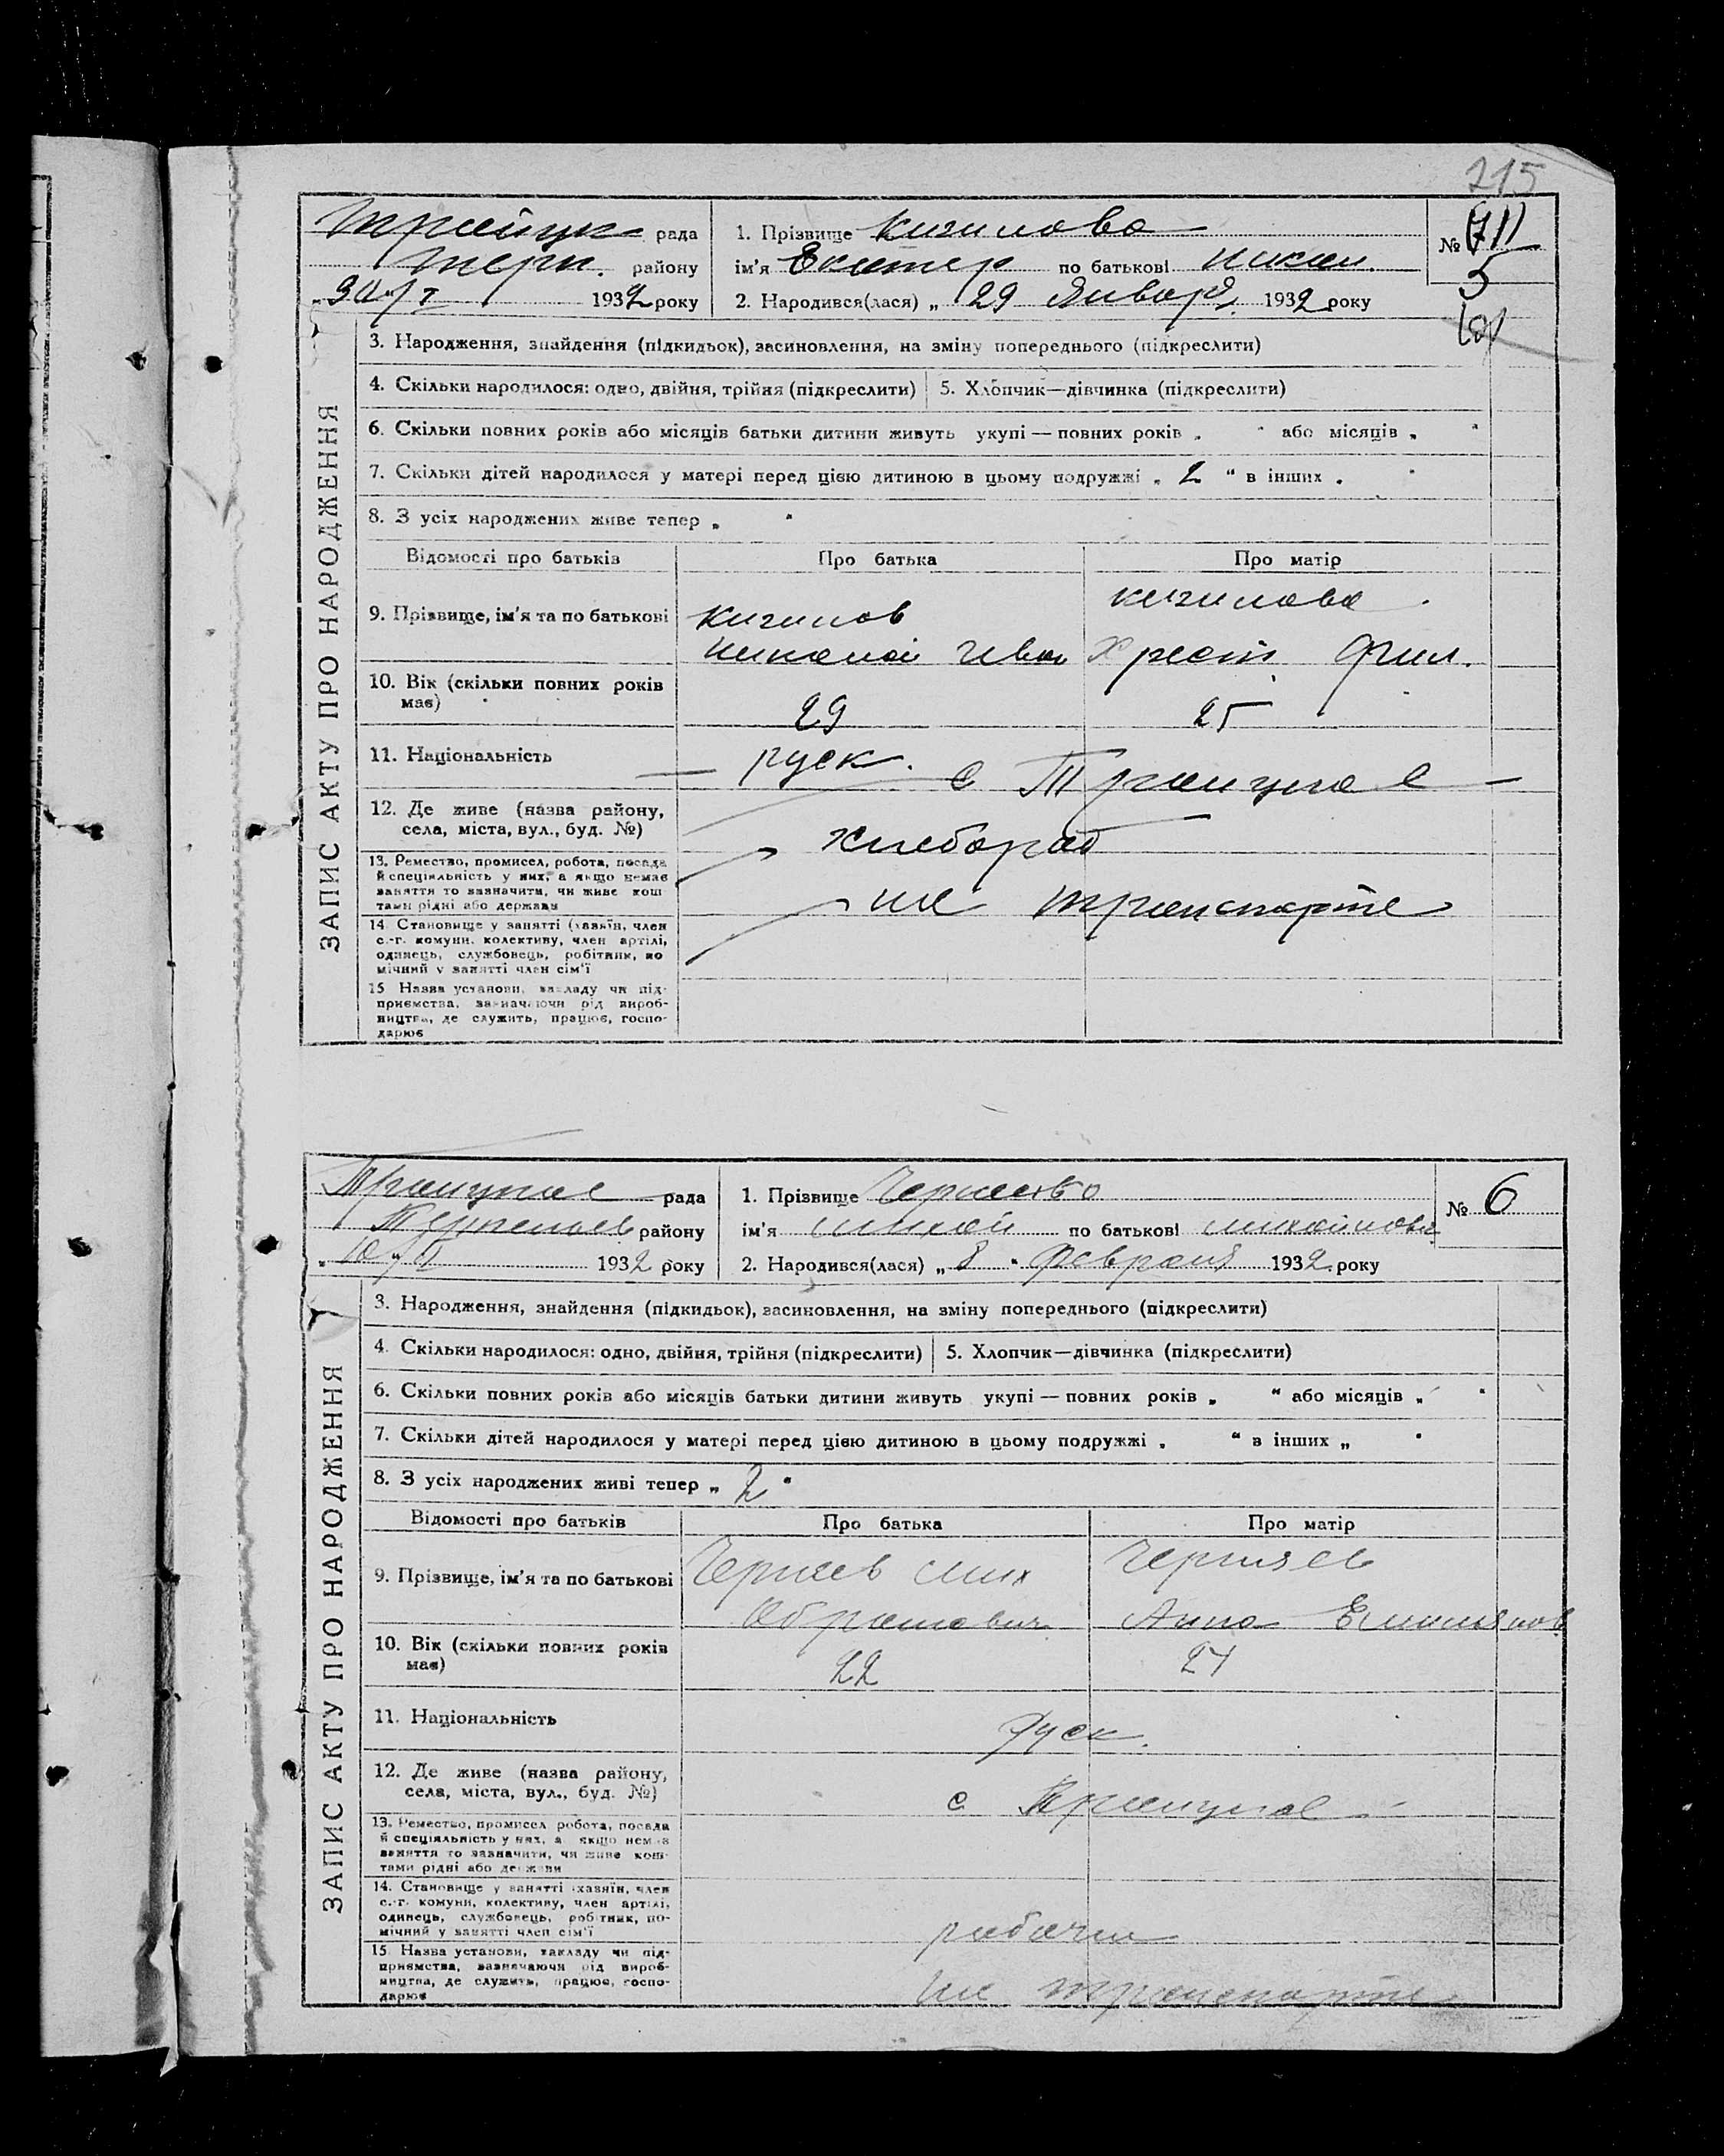 215
рада 1. Прізвище Кичилова №
Терп. району ім'я Екатер по батькові Никол. 5
30/I 1932 року 2. Народився(лася) „ 29 Январ 1932 року
ЗАПИС АКТУ ПРО НАРОДЖЕННЯ
3. Народження, знайдення (підкидьок), засиновлення, на зміну попереднього (підкреслити)
4. Скільки народилося: одно, двійня, трійня (підкреслити) 5. Хлопчик—дівчинка (підкреслити)
6. Скільки повних років або місяців батьки дитини живуть укупі — повних років „ “ або місяців „ “
7. Скільки дітей народилося у матері перед цією дитиною в цьому подружжі „ 2 “ в інших „ “
8. З усіх народжених живе тепер „ “
Відомості про батьків Про батька Про матір
9. Прізвище, ім'я та по батькові Кичилов Кичилова
Николай Иван Христ. Фил.
10. Вік (скільки повних років
має) 29 25
11. Національність руск.
12. Де живе (назва району,
села, міста, вул., буд. №) с Троицкое
13. Ремество, промисел, робота, посада
й спеціяльність у них, а якщо немає
заняття то зазначити, чи живе кош-
тами рідні або держави
хлебороб
14. Становище у занятті (хазяїн, член
с.-г. комуни, колективу, член артілі,
одинець, службовець, робітник, по-
мічний у занятті член сім'ї
на транспорте
15. Назва установи, закладу чи під-
приємства, зазначаючи рід вироб-
ництва, де служить, працює, госпо-
дарює
Троицкое рада 1. Прізвище № 6
району ім'я Михаил по батькові Михайлович
10/II 1932 року 2. Народився(лася) „ 8 “ Февраля 1932 року
ЗАПИС АКТУ ПРО НАРОДЖЕННЯ
3. Народження, знайдення (підкидьок), засиновлення, на зміну попереднього (підкреслити)
4. Скільки народилося: одно, двійня, трійня (підкреслити) 5. Хлопчик—дівчинка (підкреслити)
6. Скільки повних років або місяців батьки дитини живуть укупі — повних років „ “ або місяців „ “
7. Скільки дітей народилося у матері перед цією дитиною в цьому подружжі „ “ в інших „ “
8. З усіх народжених живі тепер „ 2 “
Відомості про батьків Про батька Про матір
9. Прізвище, ім'я та по батькові Черняев Мих Черняев
Абрамович Анна Емильянов
10. Вік (скільки повних років
має) 22 24
11. Національність руск.
12. Де живе (назва району,
села, міста, вул., буд. №) с Троицкое
13. Ремество, промисел робота, посада
й спеціяльність у них, а якщо немає
заняття то зазначити, чи живе кош-
тами рідні або держави
14. Становище у занятті (хазяїн, член
с.-г. комуни, колективу, член артілі,
одинець, службовець, робітник, по-
мічний у занятті член сім'ї
рабочи
15. Назва установи, закладу чи під-
приємства, зазначаючи рід вироб-
ництва, де служить, працює, госпо-
дарює
на транспорте